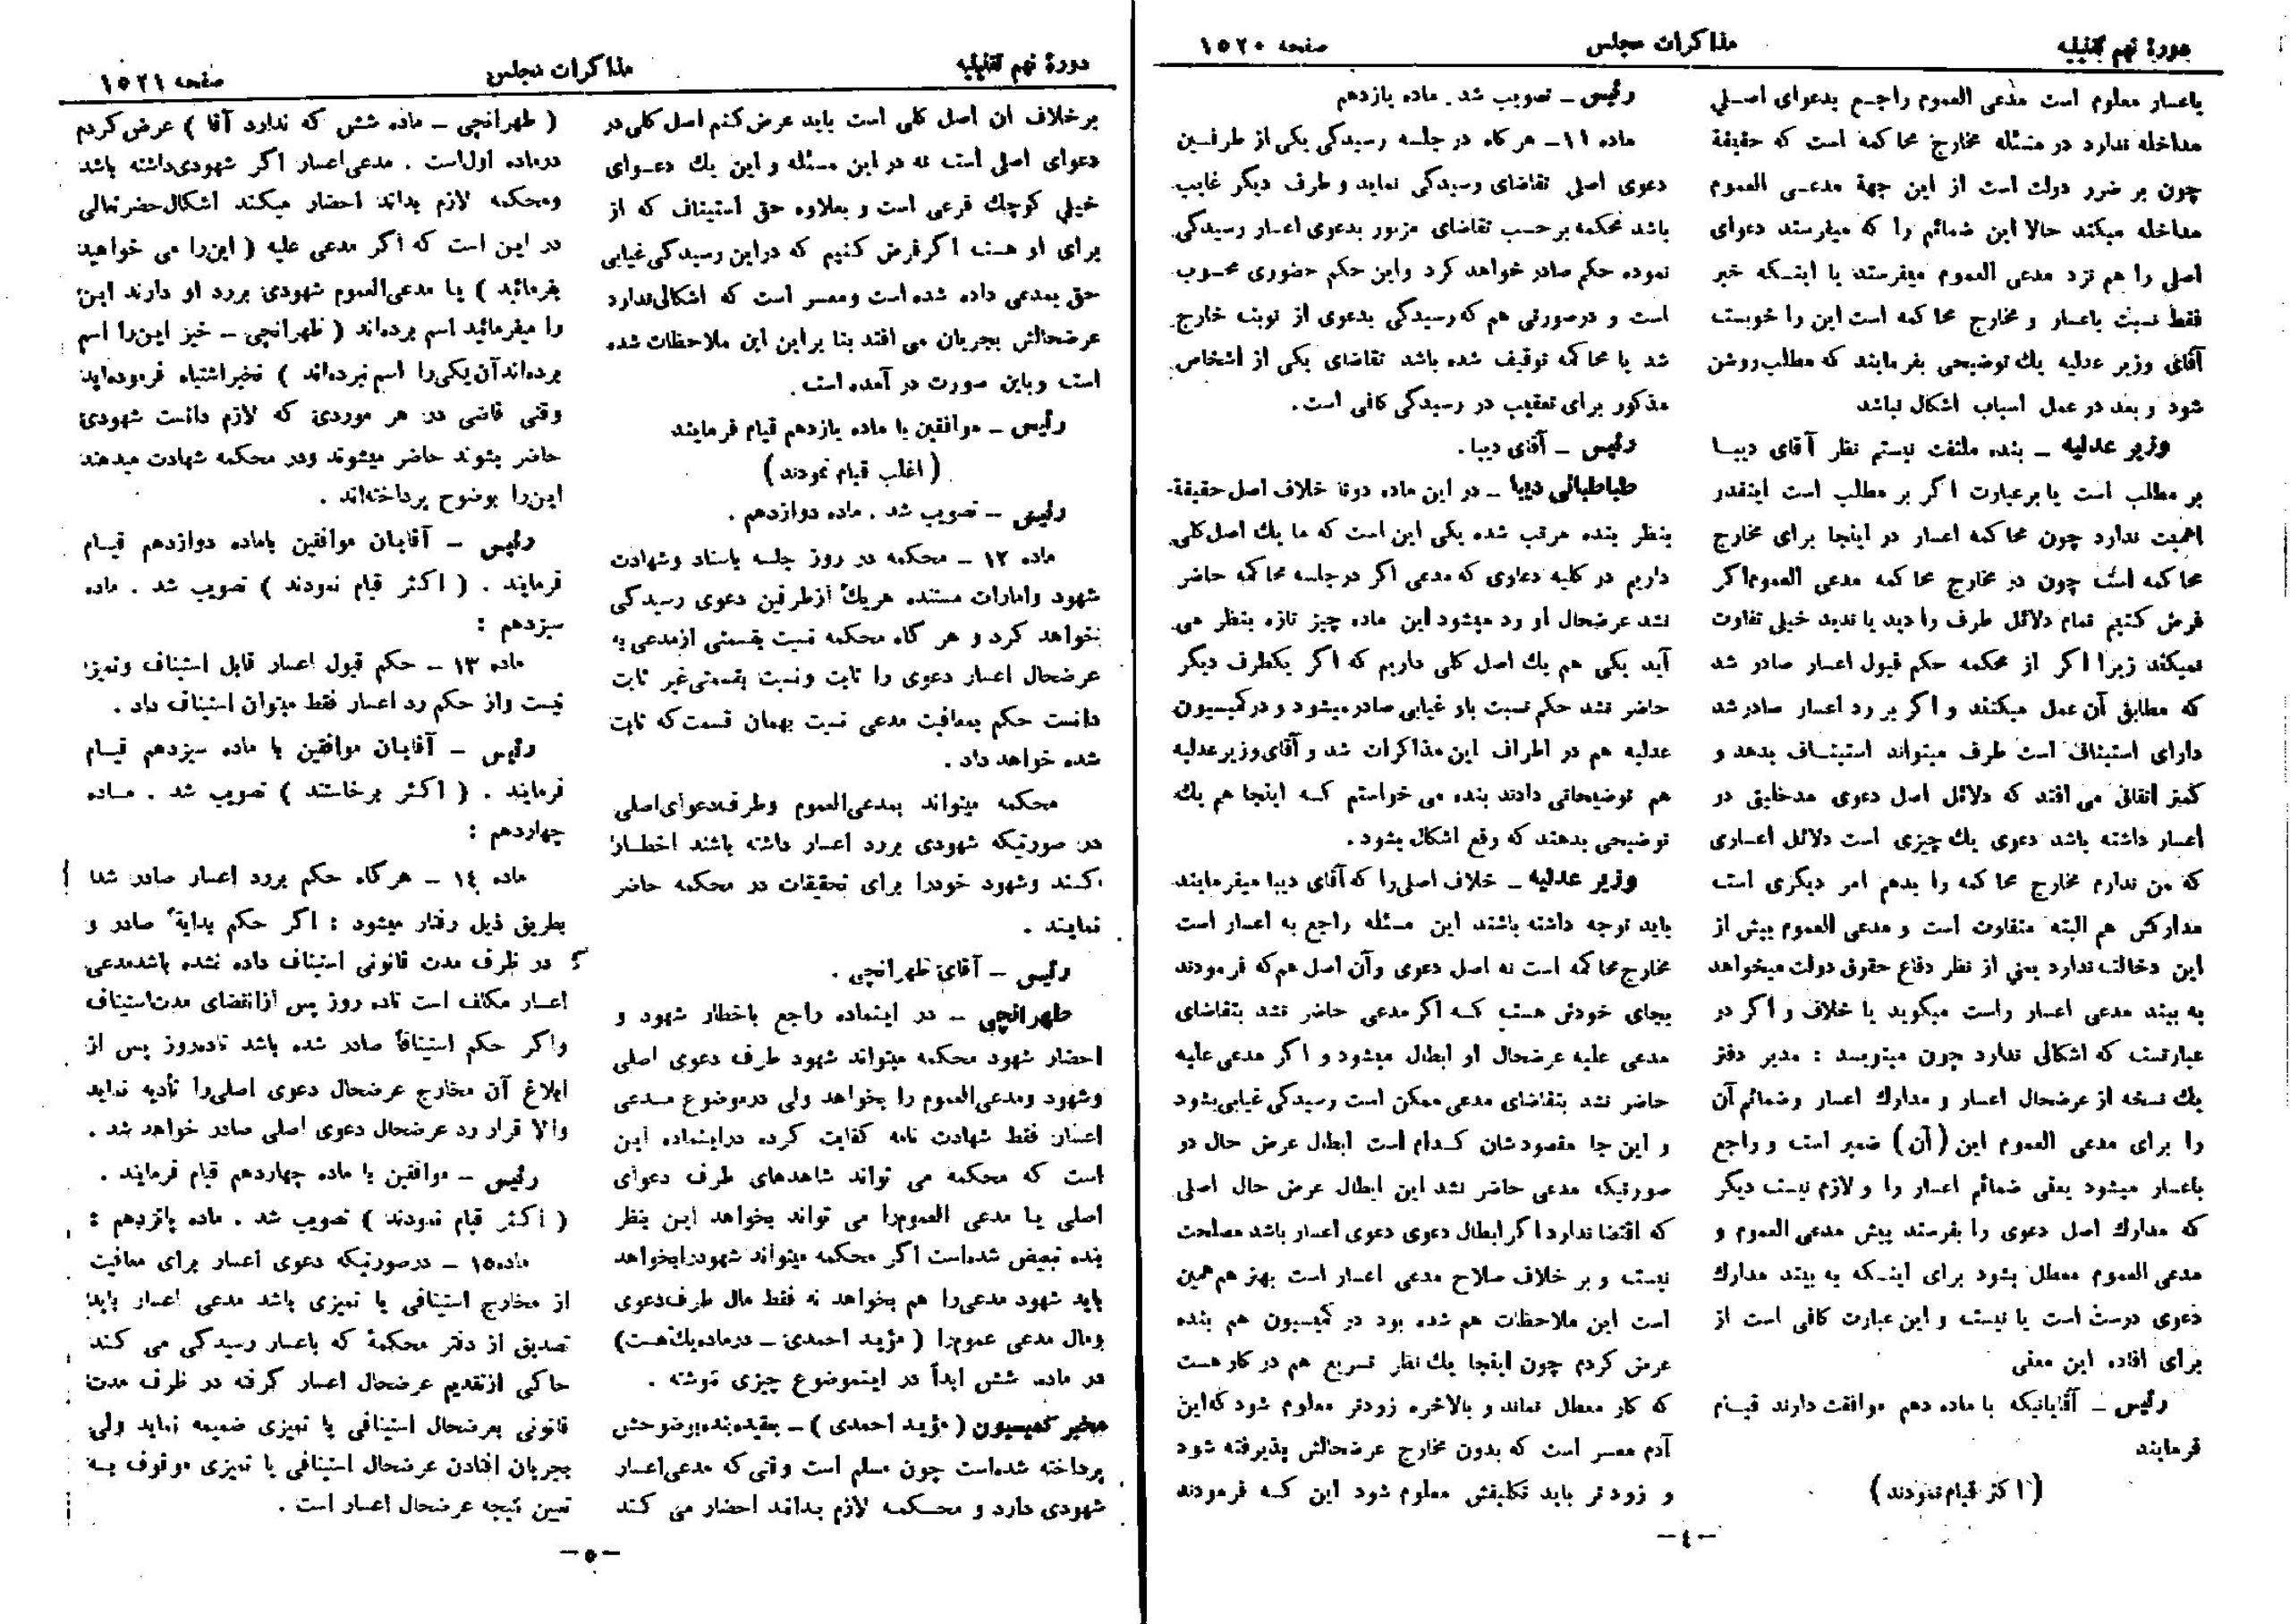 دورهٔ نهم تقنینیه
مذاکرات مجلس
صفحه ۱۵۲۰
باعسار معلوم است مدعی العموم راجع بدعوای اصلی
مداخله ندارد در مسئله مخارج محاکمه است که حقیقة
چون بر ضرر دولت است از این جهة مدعی العموم
مداخله میکند حالا این ضمائم را که میفرستد دعوای
اصلی را هم نزد مدعی العموم میفرستد یا اینکه خبر
فقط نسبت باعسار و مخارج محاکمه است این را خوبست
آقای وزیر عدلیه یك توضیحی بفرمایند که مطلب روشن
شود و بعد در عمل اسباب اشکال نباشد
وزیر عدلیه ـ بنده ملتفت نیستم نظر آقای دیبا
بر مطلب است یا برعبارت اگر بر مطلب است اینقدر
اهمیت ندارد چون محاکمه اعسار در اینجا برای مخارج
محاکمه است چون در مخارج محاکمه مدعی العموم اگر
فرض کنیم تمام دلائل طرف را دید یا ندید خیلی تفاوت
نمیکند زیرا اگر از محکمه حکم قبول اعسار صادر شد
که مطابق آن عمل میکنند و اگر بر رد اعسار صادر شد
دارای استیناف است طرف میتواند استیناف بدهد و
کمتر اتفاق می افتد که دلائل اصل دعوی مدخلیتی در
اعسار داشته باشد دعوی یك چیزی است دلائل اعساری
که من ندارم مخارج محاکمه را بدهم امر دیگری است
مدارکش هم البته متفاوت است و مدعی العموم بیش از
این دخالت ندارد یعنی از نظر دفاع حقوق دولت میخواهد
به بیند مدعی اعسار راست میگوید یا خلاف و اگر در
عبارتست که اشکالی ندارد چون مینویسد : مدیر دفتر
یك نسخه از عرضحال اعسار و مدارك اعسار وضمائم آن
را برای مدعی العموم این (آن) ضمیر است و راجع
باعسار میشود یعنی ضمائم اعسار را و لازم نیست دیگر
که مدارك اصل دعوی را بفرستد پیش مدعی العموم و
مدعی العموم معطل بشود برای اینکه به بیند مدارك
دعوی درست است یا نیست و این عبارت کافی است از
برای افاده این معنی
رئیس ـ آقایانیکه با ماده دهم موافقت دارند قیام
فرمایند
(اکثر قیام نمودند)
رئیس ـ تصویب شد . ماده یازدهم
ماده ۱۱ـ هر گاه در جلسه رسیدگی یکی از طرفین
دعوی اصلی تقاضای رسیدگی نماید و طرف دیگر غایب
باشد محکمه برحسب تقاضای مزبور بدعوی اعسار رسیدگی
نموده حکم صادر خواهد کرد واین حکم حضوری محسوب
است و درصورتی هم که رسیدگی بدعوی از نوبت خارج
شد یا محاکمه توقیف شده باشد تقاضای یکی از اشخاص
مذکور برای تعقیب در رسیدگی کافی است .
رئیس ـ آقای دیبا .
طباطبائی دیبا ـ در این ماده دوتا خلاف اصل حقیقة
بنظر بنده مرتب شده یکی این است که ما یك اصل کلی
داریم در کلیه دعاوی که مدعی اگر در جلسه محاکمه حاضر
نشد عرضحال او رد میشود این ماده چیز تازه بنظر می
آید یکی هم یك اصل کلی داریم که اگر یکطرف دیگر
حاضر نشد حکم نسبت باو غیابی صادر میشود و در کمیسیون
عدلیه هم در اطراف این مذاکرات شد و آقای وزیر عدلیه
هم توضیحاتی دادند بنده می خواستم که اینجا هم یك
توضیحی بدهند که رفع اشکال بشود .
وزیر عدلیه ـ خلاف اصلی را که آقای دیبا میفرمایند
باید توجه داشته باشند این مسئله راجع به اعسار است
مخارج محاکمه است نه اصل دعوی وآن اصل هم که فرمودند
بجای خودش هست که اگر مدعی حاضر نشد بتقاضای
مدعی علیه عرضحال او ابطال میشود و اگر مدعی علیه
حاضر نشد بتقاضای مدعی ممکن است رسیدگی غیابی بشود
و این جا مقصودشان کدام است ابطال عرض حال در
صورتیکه مدعی حاضر نشد این ابطال عرض حال اصلی
که اقتضا ندارد اگر ابطال دعوی دعوی اعسار باشد مصلحت
نیست و بر خلاف صلاح مدعی اعسار است بهتر هم همین
است این ملاحظات هم شده بود در کمیسیون هم بنده
عرض کردم چون اینجا یك نظر تسریع هم در کار هست
که کار معطل نماند و بالاخره زودتر معلوم شود که این
آدم معسر است که بدون مخارج عرضحالش پذیرفته شود
و زودتر باید تکلیفش معلوم شود این که فرمودند
ـ٤ـ
دورهٔ نهم تقنینیه
مذاکرات مجلس
صفحه ۱۵۲۱
برخلاف ان اصل کلی است باید عرض کنم اصل کلی در
دعوای اصلی است نه در این مسئله و این یك دعوای
خیلی کوچك فرعی است و بعلاوه حق استیناف که از
برای او هست اگر فرض کنیم که دراین رسیدگی غیابی
حق بمدعی داده شده است ومعسر است که اشکالی ندارد
عرضحالش بجریان می افتد بنا براین این ملاحظات شده
است و باین صورت در آمده است .
رئیس ـ موافقین با ماده یازدهم قیام فرمایند
(اغلب قیام نمودند)
رئیس ـ تصویب شد . ماده دوازدهم .
ماده ۱۲ ـ محکمه در روز جلسه باسناد وشهادت
شهود وامارات مستنده هریك ازطرفین دعوی رسیدگی
خواهد کرد و هر گاه محکمه نسبت بقسمتی ازمدعی به
عرضحال اعسار دعوی را ثابت ونسبت بقسمتی غیر ثابت
دانست حکم بمعافیت مدعی نسبت بهمان قسمت که ثابت
شده خواهد داد .
محکمه میتواند بمدعی العموم وطرف دعوای اصلی
در صورتیکه شهودی بررد اعسار داشته باشند اخطار
کند وشهود خودرا برای تحقیقات در محکمه حاضر
نمایند .
رئیس ـ آقای طهرانچی .
طهرانچی ـ در اینماده راجع باخطار شهود و
احضار شهود محکمه میتواند شهود طرف دعوی اصلی
وشهود ومدعی العموم را بخواهد ولی درموضوع مدعی
اعسار فقط شهادت نامه کفایت کرده دراینماده این
است که محکمه می تواند شاهدهای طرف دعوای
اصلی یا مدعی العموم را می تواند بخواهد این بنظر
بنده تبعیض شده است اگر محکمه میتواند شهود را بخواهد
باید شهود مدعی را هم بخواهد نه فقط مال طرف دعوی
ومال مدعی عموم را (مؤید احمدی ـ درماده یك هست)
در ماده شش ابداً در اینموضوع چیزی نوشته .
مخبر کمیسیون (مؤید احمدی) ـ بعقیده بنده بوضوحش
پرداخته شده است چون مسلم است وقتی که مدعی اعسار
شهودی دارد و محکمه لازم بداند احضار می کند
(طهرانچی ـ ماده شش که ندارد آقا) عرض کردم
درماده اول است . مدعی اعسار اگر شهودی داشته باشد
ومحکمه لازم بداند احضار میکند اشکال حضرتعالی
در این است که اگر مدعی علیه (این را می خواهید
بفرمائید) یا مدعی العموم شهودی بررد او دارند این
را میفرمائید اسم برده اند (طهرانچی ـ خیر این را اسم
برده اند آن یکی را اسم نبرده اند) نخیر اشتباه فرموده اید
وقتی قاضی در هر موردی که لازم دانست شهودی
حاضر بشوند حاضر میشوند ودر محکمه شهادت میدهند
این را بوضوح پرداخته اند .
رئیس ـ آقایان موافقین باماده دوازدهم قیام
فرمایند . (اکثر قیام نمودند) تصویب شد . ماده
سیزدهم :
ماده ۱۳ ـ حکم قبول اعسار قابل استیناف وتمیز
نیست واز حکم رد اعسار فقط میتوان استیناف داد .
رئیس ـ آقایان موافقین با ماده سیزدهم قیام
فرمایند . (اکثر برخاستند) تصویب شد . ماده
چهاردهم :
ماده ١٤ ـ هرگاه حکم بررد اعسار صادر شد
بطریق ذیل رفتار میشود : اگر حکم بدایةً صادر و
در ظرف مدت قانونی استیناف داده نشده باشد مدعی
اعسار مکلف است تاده روز پس ازانقضای مدت استیناف
واگر حکم استینافاً صادر شده باشد تاده روز پس از
ابلاغ آن مخارج عرضحال دعوی اصلی را تأدیه نماید
والا قرار رد عرضحال دعوی اصلی صادر خواهد شد .
رئیس ـ موافقین با ماده چهاردهم قیام فرمایند .
(اکثر قیام نمودند) تصویب شد . ماده پانزدهم :
ماده ۱۵ ـ درصورتیکه دعوی اعسار برای معافیت
از مخارج استینافی یا تمیزی باشد مدعی اعسار باید
تصدیق از دفتر محکمهٔ که باعسار رسیدگی می کند
حاکی ازتقدیم عرضحال اعسار گرفته در ظرف مدت
قانونی بعرضحال استینافی یا تمیزی ضمیمه نماید ولی
بجریان افتادن عرضحال استینافی یا تمیزی موقوف به
تعیین نتیجه عرضحال اعسار است .
ـ۵ـ